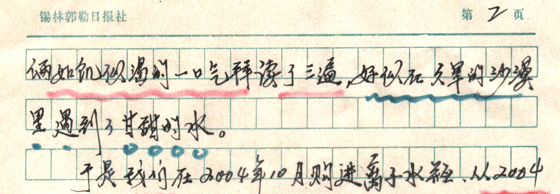 锡林郭勒日报社 第 2 页
俩如饥似渴的一口气拜读了三遍,好似在久旱的沙漠
里遇到了甘甜的水。
于是我们在2004年10月购进离子水器,从2004